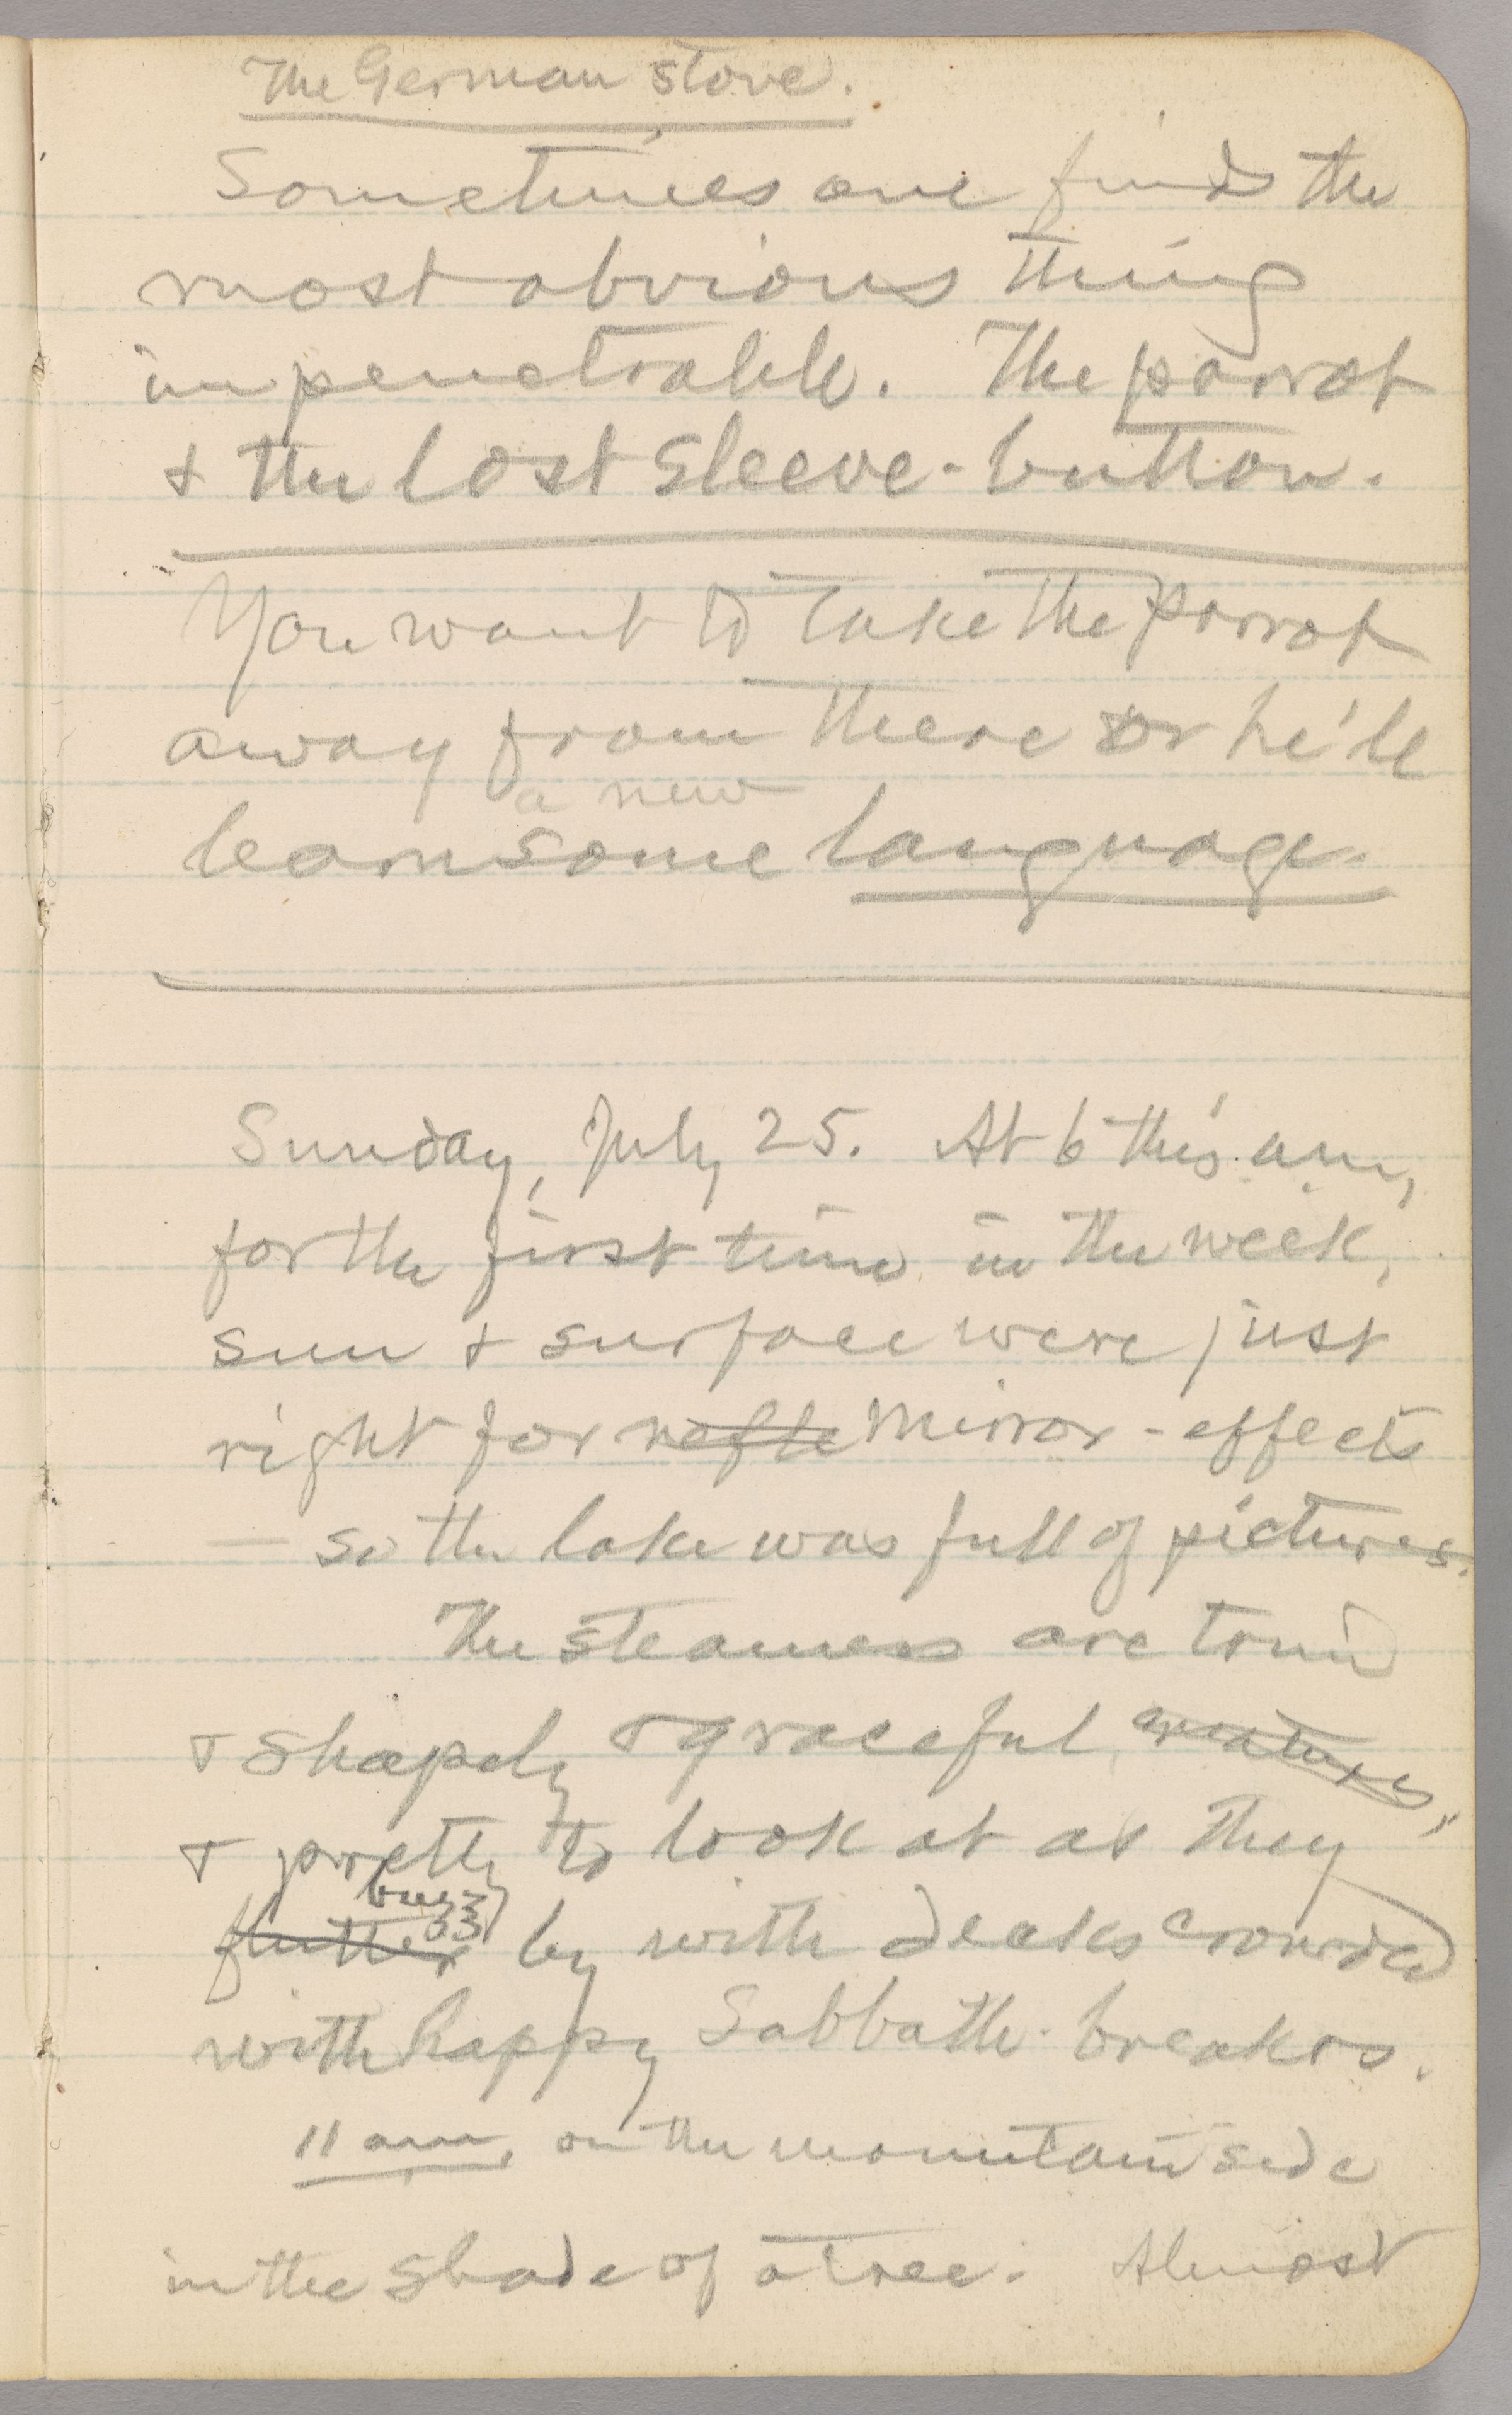 The German stove.
Sometimes one finds the
most obvious thing
impenetrable. The parrot
& the lost sleeve-button.
You want to take the parrot
away from there or he'll
a new
learn some language.
Sunday, July 25. At 6 this a.m.,
for the first time in the week,
sun & surface were just
right for refle mirror-effects
— so the lake was full of pictures.
The steamers are trim
& shapely & graceful creatures,
& pretty to look at as they
buzz
flutter by with decks crowded
with happy Sabbath-breakers.
11 am, on the mountain side
in the shade of a tree. Almost